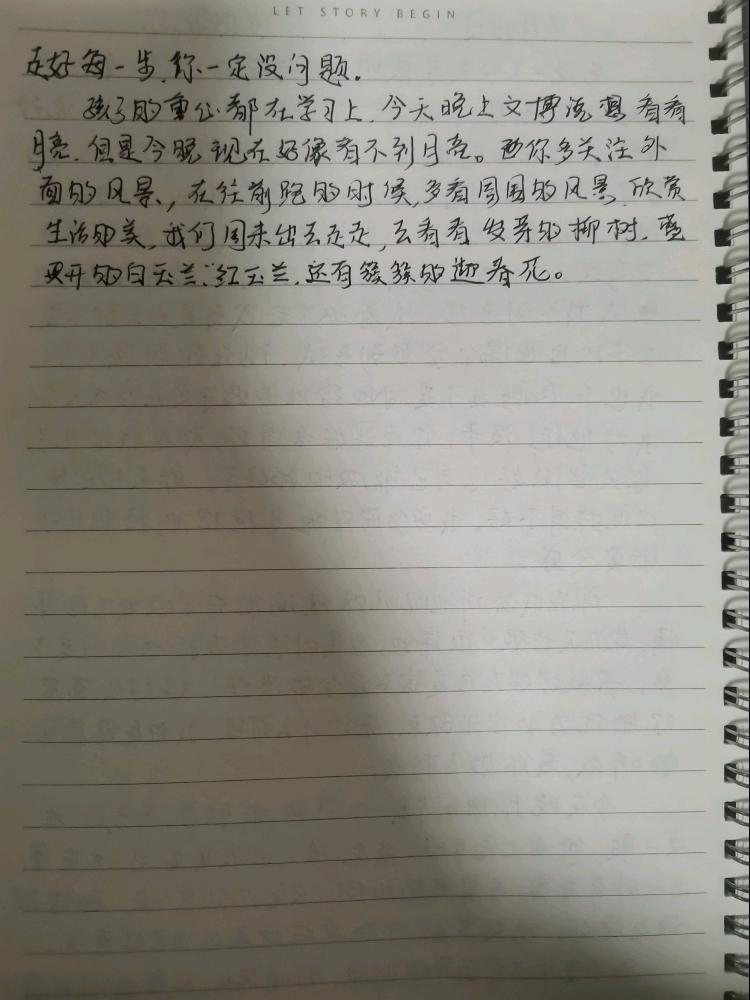 LET STORY BEGIN
走好每一步,你一定没问题.
孩子的重心都在学习上,今天晚上文博说想看看
月亮,但是今晚现在好像看不到月亮。西你多关注外
面的风景,在往前跑的时候,多看周围的风景,欣赏
生活的美,我们周末出去走走,去看看发芽的柳树,
要开的白玉兰、红玉兰,还有簇簇的迎春花。